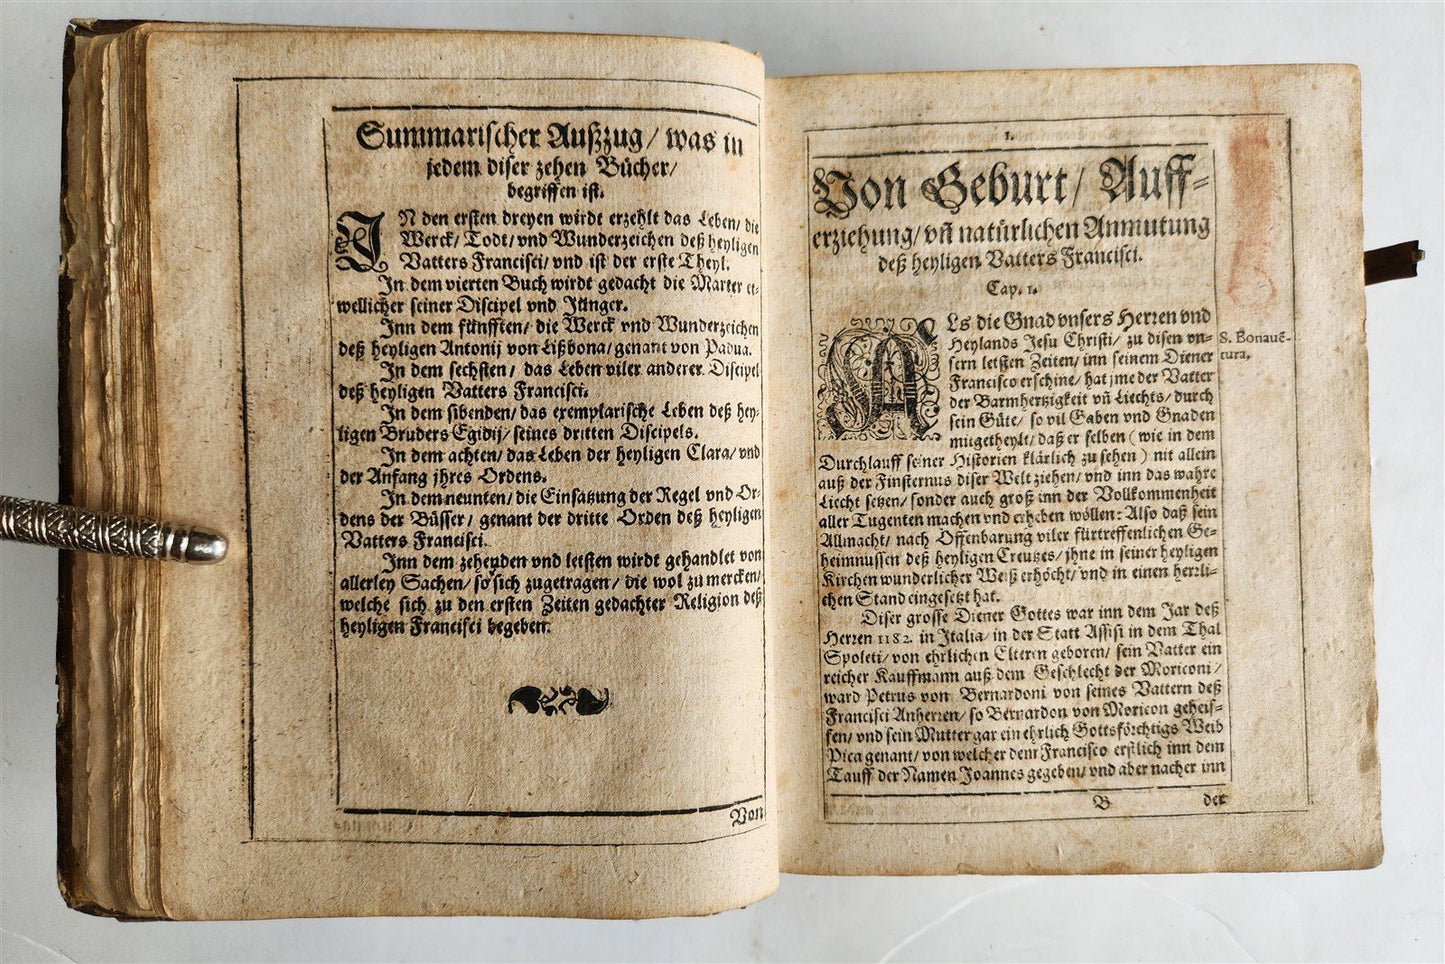 Summarischer Außzug/ was in
jedem diser zehen Bücher/
begriffen ist.
IN den ersten dreyen wirdt erzehlt das Leben/ die
Werck/ Todt/ vnd Wunderzeichen deß heyligen
Vatters Francisci/ vnd ist der erste Theyl.
In dem vierten Buch wirdt gedacht die Marter et-
wellicher seiner Discipel vnd Jünger.
Inn dem fünfften/ die Werck vnd Wunderzeichen
deß heyligen Antonij von Lißbona/ genant von Padua.
In dem sechsten/ das Leben viler anderer Discipel
deß heyligen Vatters Francisci.
In dem sibenden/ das exemplarische Leben deß hey-
ligen Bruders Egidij/ seines dritten Discipels.
In dem achten/ das Leben der heyligen Clara/ vnd
der Anfang jhres Ordens.
In dem neunten/ die Einsatzung der Regel vnd Or-
dens der Büsser/ genant der dritte Orden deß heyligen
Vatters Francisci.
Inn dem zehenden vnd letsten wirdt gehandlet von
allerley Sachen/ so sich zugetragen/ die wol zu mercken/
welche sich zu den ersten Zeiten gedachter Religion deß
heyligen Francisci begeben.
Von
1.
Von Geburt/ Auff-
erziehung/ vñ natürlichen Anmutung
deß heyligen Vatters Francisci.
Cap. 1.
ALs die Gnad vnsers Herren vnd
Heylands Jesu Christi/ zu disen vn-
sern letsten Zeiten/ inn seinem Diener
Francisco erschine/ hat jme der Vatter
der Barmhertzigkeit vñ Liechts/ durch
sein Güte/ so vil Gaben vnd Gnaden
mitgetheylt/ daß er selben (wie in dem
Durchlauff seiner Historien klärlich zu sehen) nit allein
auß der Finsternus diser Welt ziehen/ vnd inn das wahre
Liecht setzen/ sonder auch groß inn der Vollkommenheit
aller Tugenten machen vnd erheben wöllen: Also daß sein
Allmacht/ nach Offenbarung viler fürtreffenlichen Ge-
heimnussen deß heyligen Creutzes/ jhne in seiner heyligen
Kirchen wunderlicher Weiß erhöcht/ vnd in einen herrli-
chen Stand eingesetzt hat.
Diser grosse Diener Gottes war inn dem Jar deß
Herren 1182. in Italia/ in der Statt Assisi in dem Thal
Spoleti/ von ehrlichen Elteren geboren/ sein Vatter ein
reicher Kauffmann auß dem Geschlecht der Moriconi/
ward Petrus von Bernardoni von seines Vattern deß
Francisci Anherren/ so Bernardon von Moricon geheis-
sen/ vnd sein Mutter gar ein ehrlich Gottsförchtigs Weib
Pica genant/ von welcher dem Francisco erstlich inn dem
Tauff der Namen Joannes gegeben/ vnd aber nacher inn
B der
S. Bonauē-
tura.